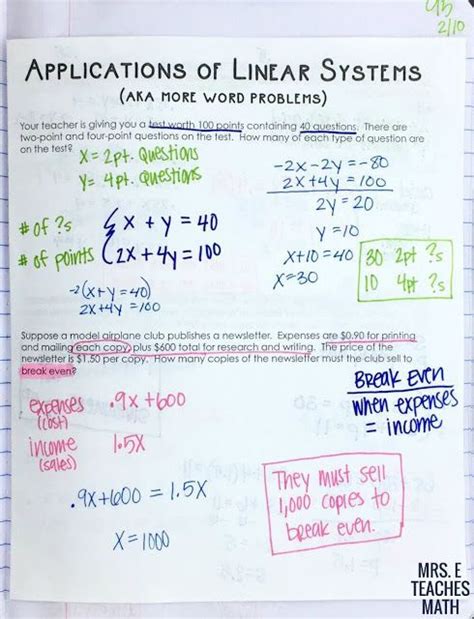 2/10
APPLICATIONS OF LINEAR SYSTEMS
(AKA MORE WORD PROBLEMS)
Your teacher is giving you a test worth 100 points containing 40 questions. There are
two-point and four-point questions on the test. How many of each type of question are
on the test?
X = 2pt. Questions
Y = 4pt. Questions
# of ?s
x + y = 40
# of points
2x + 4y = 100
-2(x+y=40)
2x+4y=100
-2x-2y=-80
2x+4y=100
2y=20
y=10
x+10=40
x=30
30 2pt ?s
10 4pt ?s
Suppose a model airplane club publishes a newsletter. Expenses are $0.90 for printing
and mailing each copy, plus $600 total for research and writing. The price of the
newsletter is $1.50 per copy. How many copies of the newsletter must the club sell to
break even?
BREAK EVEN
when expenses
= income
expenses
(cost)
.9x+600
income
(sales)
1.5x
.9x+600=1.5x
x=1000
They must sell
1,000 copies to
break even.
MRS. E
TEACHES
MATH